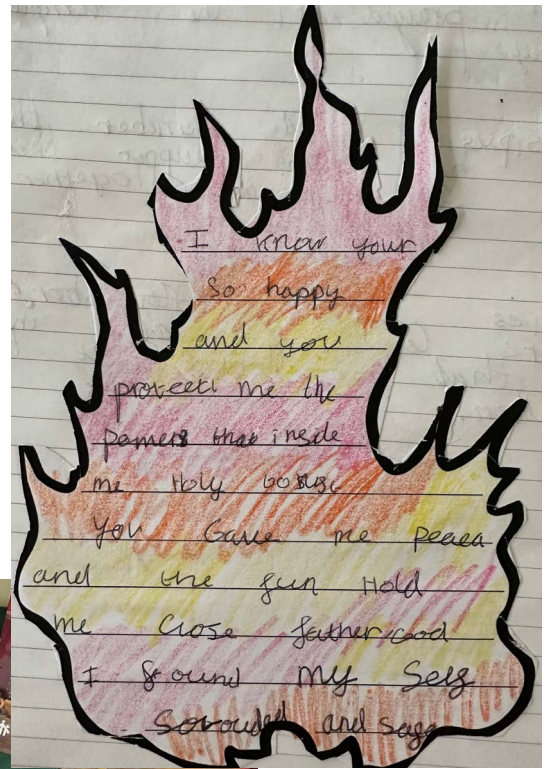 I know your
So happy
and you
proveeti me the
pamers that inside
me Holy
You Gave me peaea
and the fun Hold
me Close father God
I found my Self
Sovouded and sage